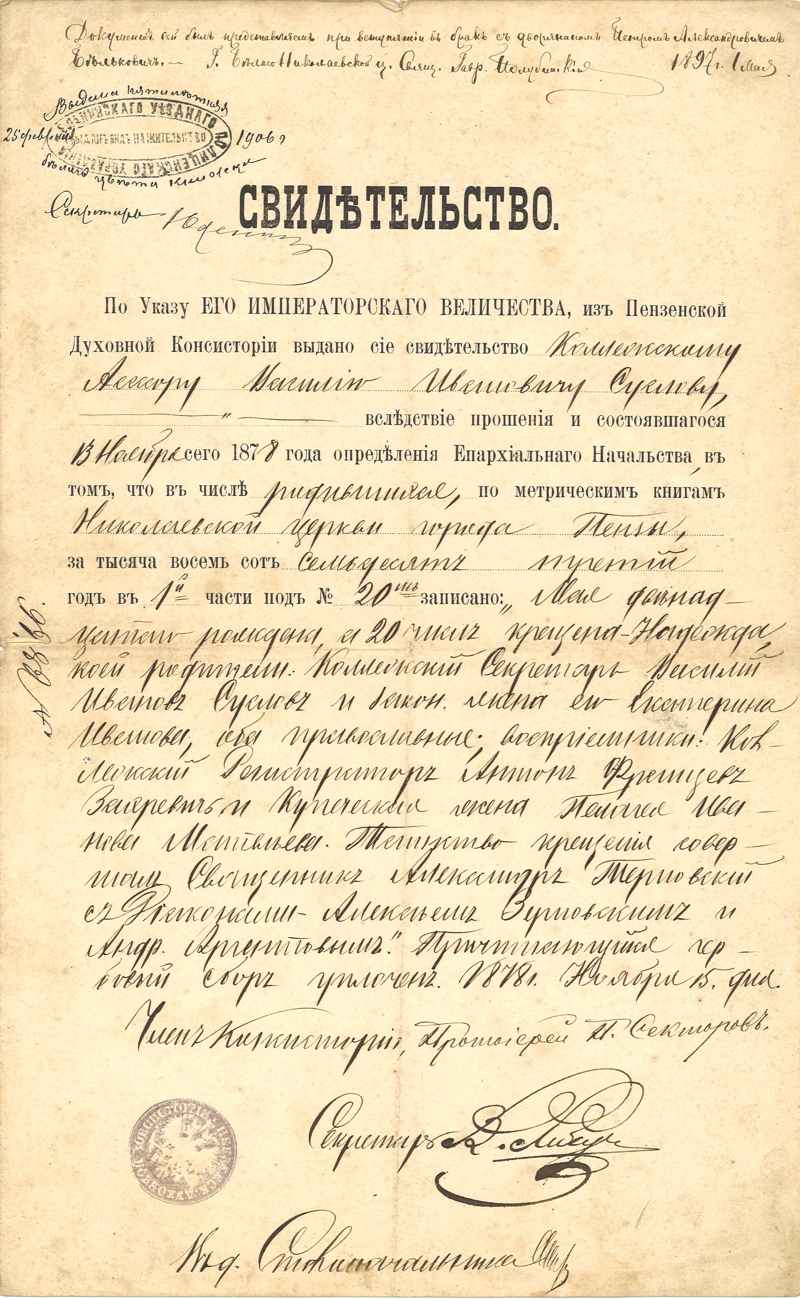 Документъ сей былъ представляемъ при вступленіи въ бракъ съ дворяниномъ Петромъ Александровичемъ
Бѣльковичъ. — Г. Бѣлаго Николаевской ц. Свящ. Гавр. 1897 г. 1 Мая
Выдана пятилѣтняя
УѢЗДНАГО ПОЛИЦЕЙСКАГО УПРАВЛЕНІЯ
ВИДЪ НА ЖИТЕЛЬСТВО
25 февраля 1906 г
бѣлаго цвѣта книжка
Секретарь
СВИДѢТЕЛЬСТВО.
По Указу ЕГО ИМПЕРАТОРСКАГО ВЕЛИЧЕСТВА, изъ Пензенской
Духовной Консисторіи выдано сіе свидѣтельство Коллежскому
Ассесору Василію Ивановичу Суслову,
— " — вслѣдствіе прошенія и состоявшагося
13 Ноября сего 1878 года опредѣленія Епархіальнаго Начальства, въ
томъ, что въ числѣ родившихся, по метрическимъ книгамъ
Николаевской церкви города Пензы,
за тысяча восемь сотъ семьдесятъ третій
годъ въ 1й части подъ № 20мъ записано: „Мая двѣнад-
цатаго рождена, а 20 числа крещена - Надежда,
коей родители: Коллежскій Секретарь Василій
Ивановъ Сусловъ и закон. жена его Екатерина
Иванова, оба православные; воспріемники: Кол-
лежскій Регистраторъ Антонъ Францевъ
и Купеческая жена Пелагея Ива-
нова Матвѣева. Таинство крещенія совер-
шалъ Священникъ Александръ Терновскій
съ Діаконами - Алексѣемъ и
Андр. Аргентовымъ". Причитающійся гер-
бовый сборъ уплоченъ. 1878 г. Ноября 15 дня.
№ 2866.
Членъ Консисторіи, Протоіерей П. Секторовъ.
Секретарь В.
Столоначальника